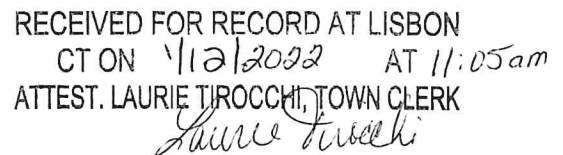 RECEIVED FOR RECORD AT LISBON
CT ON 1/12/2022 AT 11:05am
ATTEST. LAURIE TIROCCHI, TOWN CLERK
Laurie Tirocchi